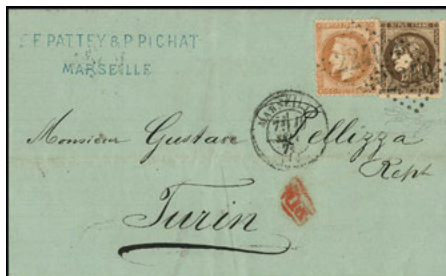 E.F. PATTEY & P. PICHAT
MARSEILLE
MARSEILLE
Monsieur Gustave Pellizza
Rept
Turin
PD